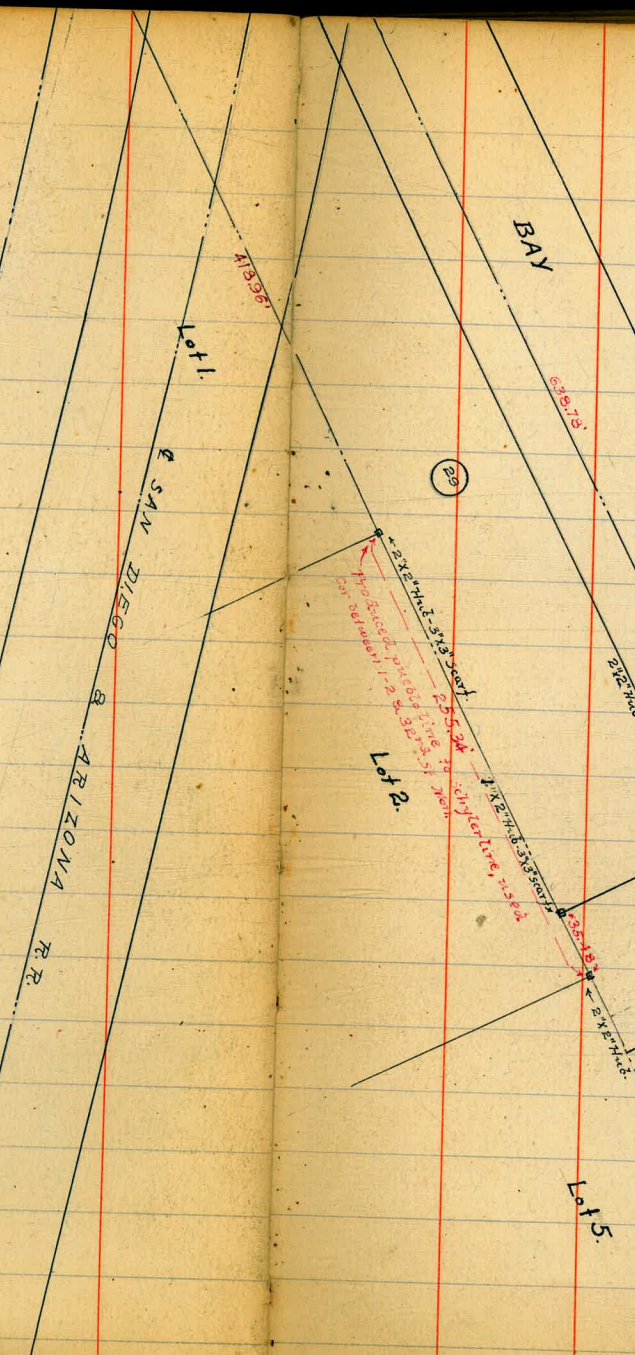 BAY
418.96'
638.78'
Lot 1.
29
℄ SAN DIEGO & ARIZONA R.R.
2"X2" Hub - 3"X3" scarf.
2"X2" Hub
255.34'
produced pueblo line to line, used
Cor between 1-2 &
Lot 2.
2"X2" Hub - 3"X3" scarf
35.18'
2"X2" Hub.
Lot 5.